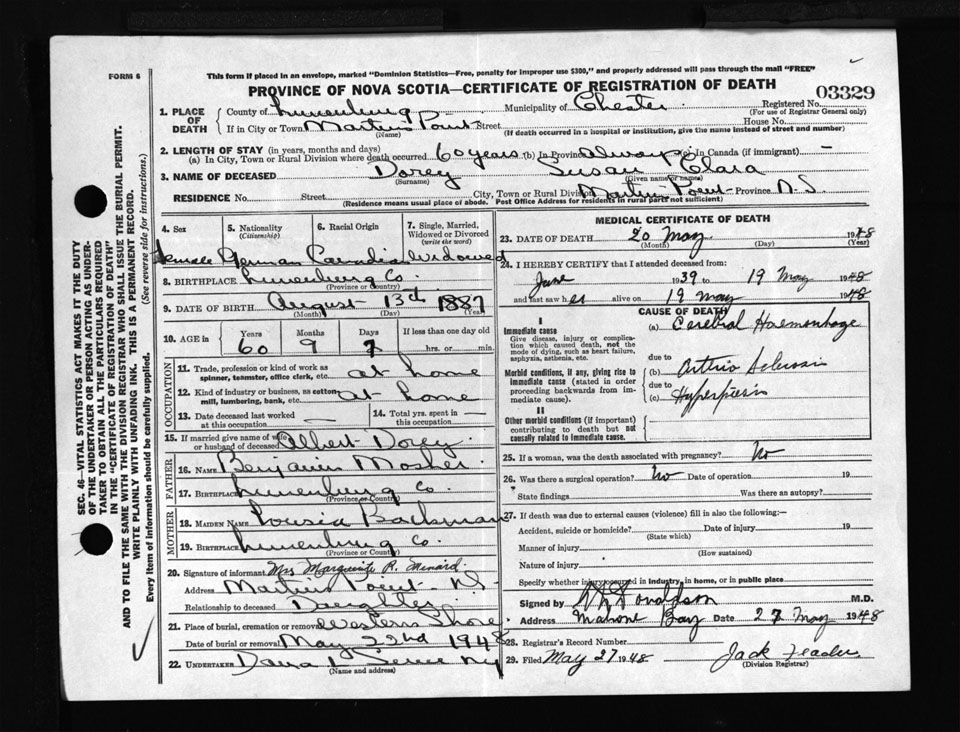 This form if placed in an envelope, marked "Dominion Statistics—Free, penalty for improper use $300," and properly addressed will pass through the mail "FREE"
FORM 6
PROVINCE OF NOVA SCOTIA—CERTIFICATE OF REGISTRATION OF DEATH
03329
1. PLACE OF DEATH
County of Lunenburg Municipality of Chester Registered No.
(For use of Registrar General only)
If in City or Town Martins Point Street House No.
(Name) (If death occurred in a hospital or institution, give the name instead of street and number)
2. LENGTH OF STAY (in years, months and days)
(a) In City, Town or Rural Division where death occurred 60 years (b) In Province Always (c) In Canada (if immigrant) —
3. NAME OF DECEASED Dorey Susan Clara
(Surname) (Given name or names)
RESIDENCE No. Street City, Town or Rural Division Martins Point Province N.S.
(Residence means usual place of abode. Post Office Address for residents in rural parts not sufficient)
4. Sex 5. Nationality (Citizenship) 6. Racial Origin 7. Single, Married, Widowed or Divorced (write the word)
female German Canadian Widowed
8. BIRTHPLACE Lunenburg Co.
(Province or Country)
9. DATE OF BIRTH August 13th 1887
(Month) (Day) (Year)
10. AGE in Years Months Days If less than one day old
60 9 7 hrs. or min.
OCCUPATION
11. Trade, profession or kind of work as spinner, teamster, office clerk, etc. at home
12. Kind of industry or business, as cotton mill, lumbering, bank, etc. at home
13. Date deceased last worked at this occupation — 14. Total yrs. spent in this occupation —
15. If married give name of wife or husband of deceased Albert Dorey
FATHER
16. NAME Benjamin Mosher
17. BIRTHPLACE Lunenburg Co.
(Province or Country)
MOTHER
18. MAIDEN NAME Lousia Bachman
19. BIRTHPLACE Lunenburg Co.
(Province or Country)
20. Signature of informant Mrs Marguerite R. Menard
Address Martins Point N.S.
Relationship to deceased Daughter
21. Place of burial, cremation or removal Western Shore
Date of burial or removal May 22nd 1948
22. UNDERTAKER
(Name and address)
MEDICAL CERTIFICATE OF DEATH
23. DATE OF DEATH 20 May 1948
(Month) (Day) (Year)
24. I HEREBY CERTIFY that I attended deceased from:
June 1939 to 19 May 1948
and last saw her alive on 19 May 1948
CAUSE OF DEATH
I
Immediate cause
Give disease, injury or complication which caused death, not the mode of dying, such as heart failure, asphyxia, asthenia, etc.
(a) Cerebral Haemorrhage
due to
Morbid conditions, if any, giving rise to immediate cause (stated in order proceeding backwards from immediate cause).
(b) Arthrio Sclerosis
due to
(c) Hyperpiesis
II
Other morbid conditions (if important) contributing to death but not causally related to immediate cause.
25. If a woman, was the death associated with pregnancy? No
26. Was there a surgical operation? No Date of operation 19
State findings Was there an autopsy?
27. If death was due to external causes (violence) fill in also the following:—
Accident, suicide or homicide? Date of injury 19
(State which)
Manner of injury
(How sustained)
Nature of injury
Specify whether injury occurred in industry, in home, or in public place
Signed by Donaldson M.D.
Address Mahone Bay Date 27 May 1948
28. Registrar's Record Number
29. Filed May 27 1948 Jack
(Division Registrar)
SEC. 46—VITAL STATISTICS ACT MAKES IT THE DUTY
OF THE UNDERTAKER OR PERSON ACTING AS UNDER-
TAKER TO OBTAIN ALL THE PARTICULARS REQUIRED
IN THE "CERTIFICATE OF REGISTRATION OF DEATH"
AND TO FILE THE SAME WITH THE DIVISION REGISTRAR WHO SHALL ISSUE THE BURIAL PERMIT.
WRITE PLAINLY WITH UNFADING INK. THIS IS A PERMANENT RECORD.
Every item of information should be carefully supplied. (See reverse side for instructions.)